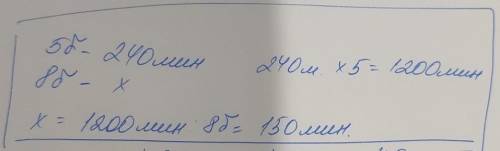 5б - 240 мин
8б - х
240 м. х 5 = 1200 мин
х = 1200 мин : 8б = 150 мин.